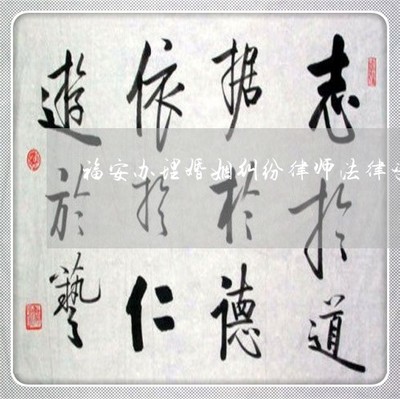 志於道
据於德
依於仁
遊於藝
福安办理婚姻纠纷律师法律